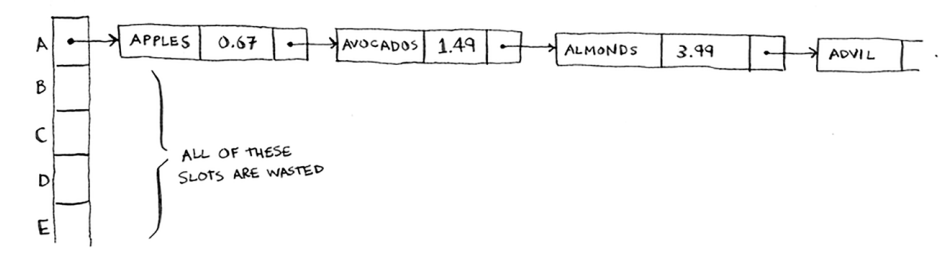 A APPLES 0.67 AVOCADOS 1.49 ALMONDS 3.99 ADVIL
B
C
D
E
ALL OF THESE
SLOTS ARE WASTED